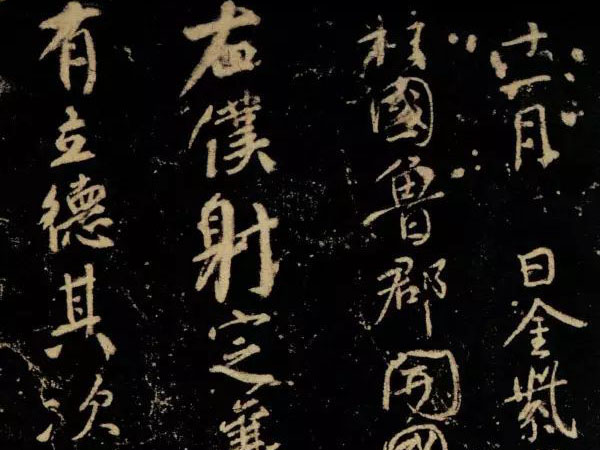 十一月 日金紫
柱國魯郡開國
右僕射定襄
有立德其次